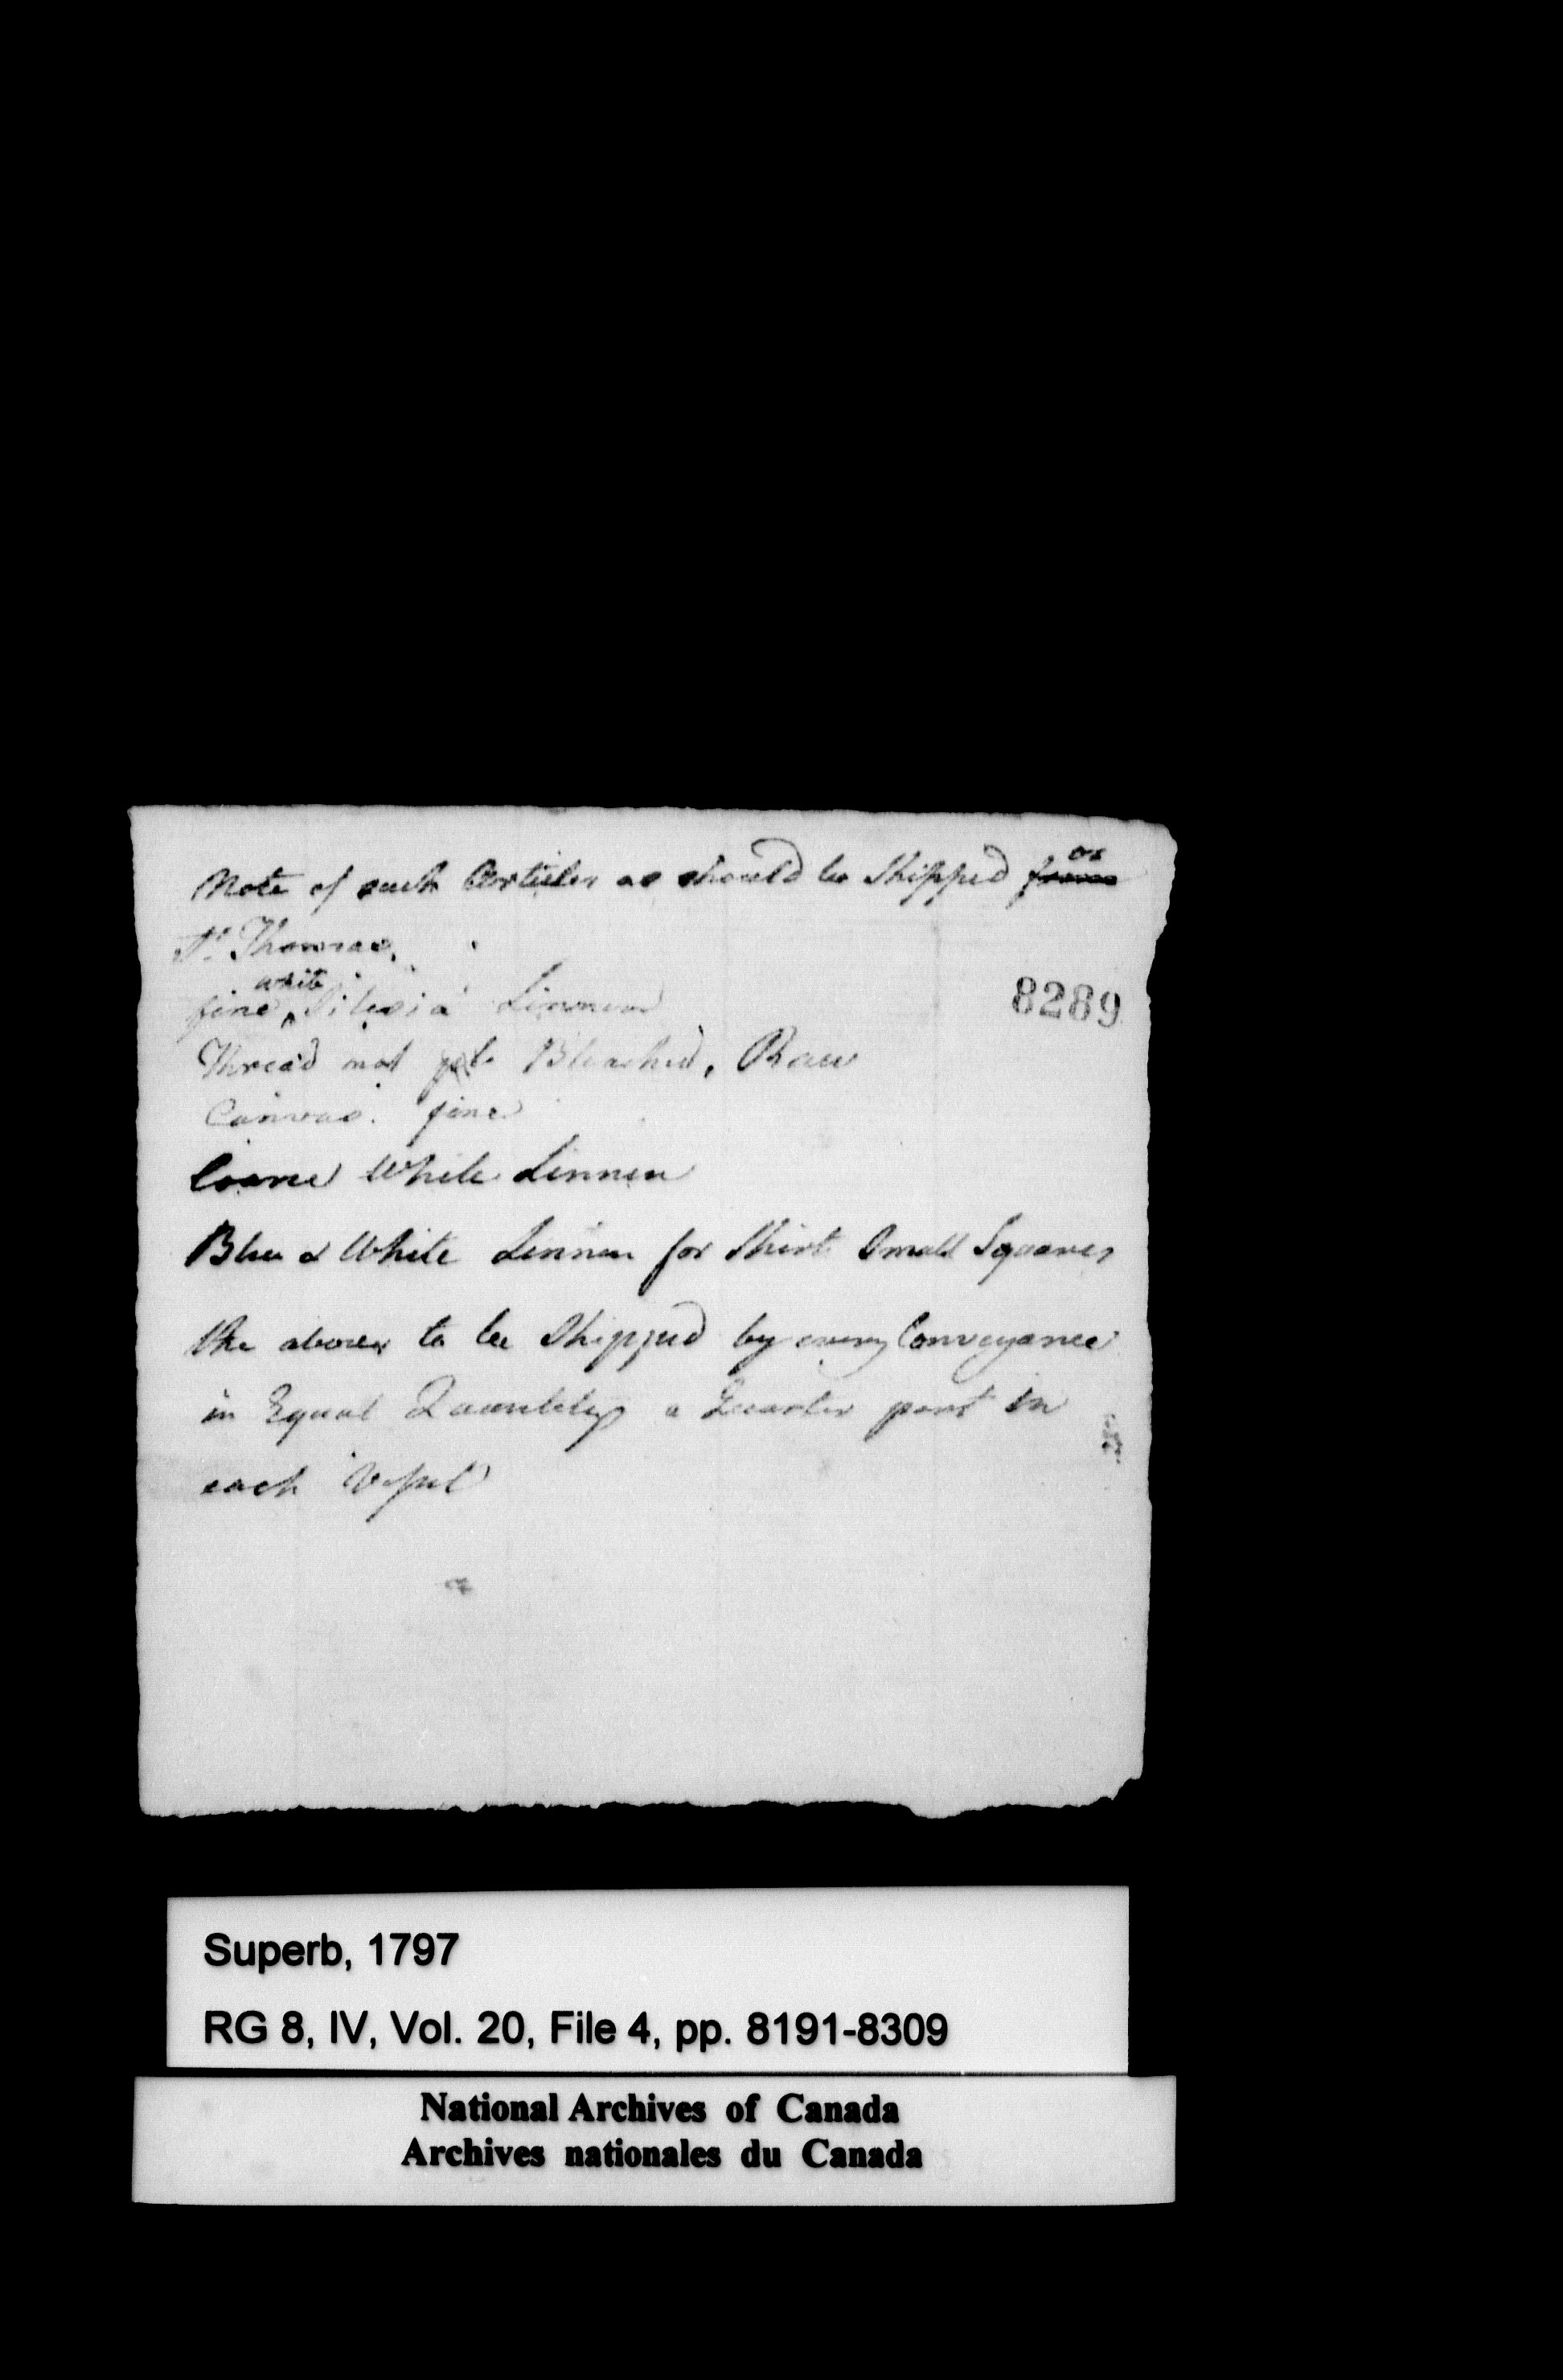 Note of such Articles as should be Shipped for
St. Thomas.
fine white Silesia Linnen
8289
Thread not yet Bleached, Raw
Canvas. fine
Coarse White Linnen
Blue & White Linnen for Shirt Small Squares
the above to be Shipped by every Conveyance
in Equal Quantity a Quarter part in
each Vessel
Superb, 1797
RG 8, IV, Vol. 20, File 4, pp. 8191-8309
National Archives of Canada
Archives nationales du Canada